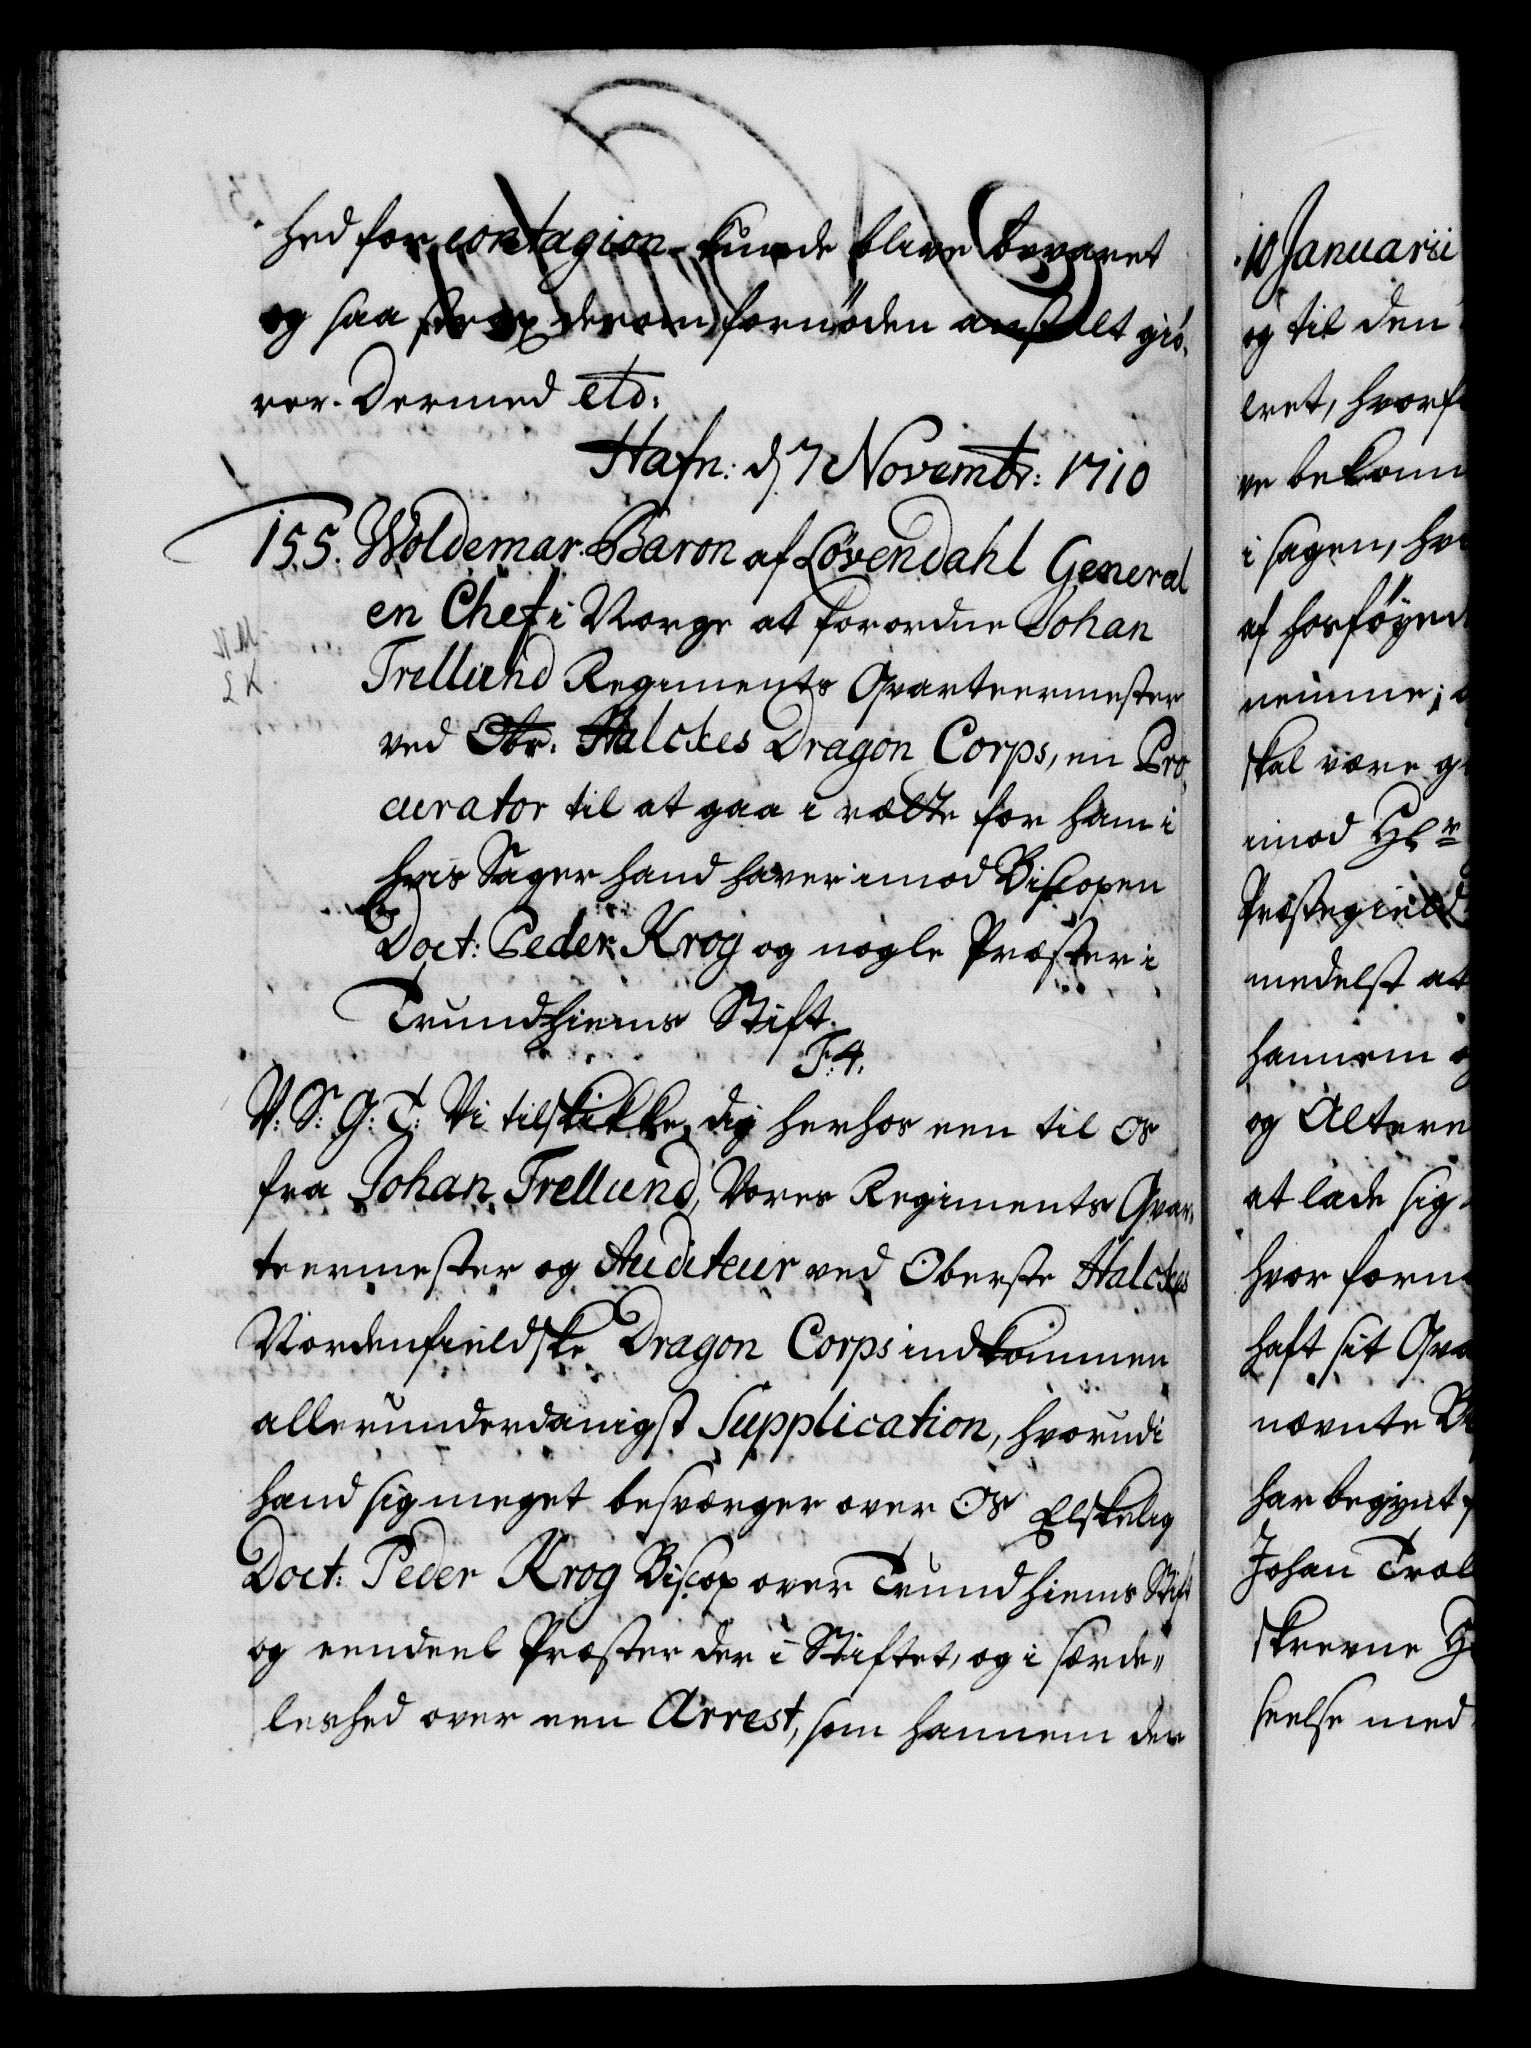 hed for contagion kunde blive bevaret
og saa strax derom fornøden anstalt giø,
rer. Dermed etc:
Hafn: d 7 Novembr: 1710
155. Woldemar Baron af Løvendahl General
en Chef i Norge at forordne Johan
Trellund Regiments Qvarteermester
ved Obr. Halckes Dragon Corps, en Pro,
curator til at gaa i rætte for ham i
hvis Sager hand haver imod Biscopen
Doct: Peder Krog og nogle Præster i
Trundhiems Stift.
F: 4.
V: S: G: T: Vi tilskikke dig herhos een til os
fra Johan Trellund, Vores Regiments Qvar,
teermester og Auditeur ved Oberste Halckes
Nordenfieldske Dragon Corps indkommen
allerunderdanigst Supplication, hvorudi
hand sig meget besværger over Os Elskelig
Doct: Peder Krog Biscop over Trundhiems Stift
og eendeel Præster der i Stiftet, og i særde„
leshed over een Arrest, som hannem der
10 Januarii
og til den
eret, hvorf
ve bekom
i sagen, hv
af hosføyed
nemme; o
skal være g
imod Hr
Præstegield
medelst at
hannem o
og Altere
at lade sig
hvor forn
haft sit Qva
nævnte B
har begynt
Johan Trel
skrevne H
seelse med